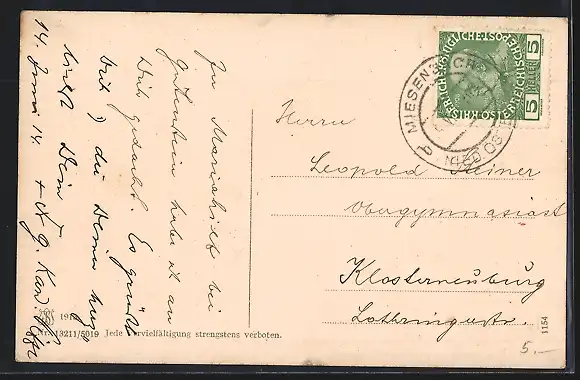 In Mariahilf bei
Gutenstein habe ich an
Dich gedacht. Es grüßt
Dich
14. Juni 14.
Herrn
Leopold Steiner
Obergymnasiast
Klosterneuburg
Lothringerstr.
MIESENBACH
NIED. ÖST
5 HELLER 5
KAISERLICHE KÖNIGLICHE ÖSTERREICHISCHE POST
191
Nr. 13211/5019 Jede Vervielfältigung strengstens verboten.
1154
5.—